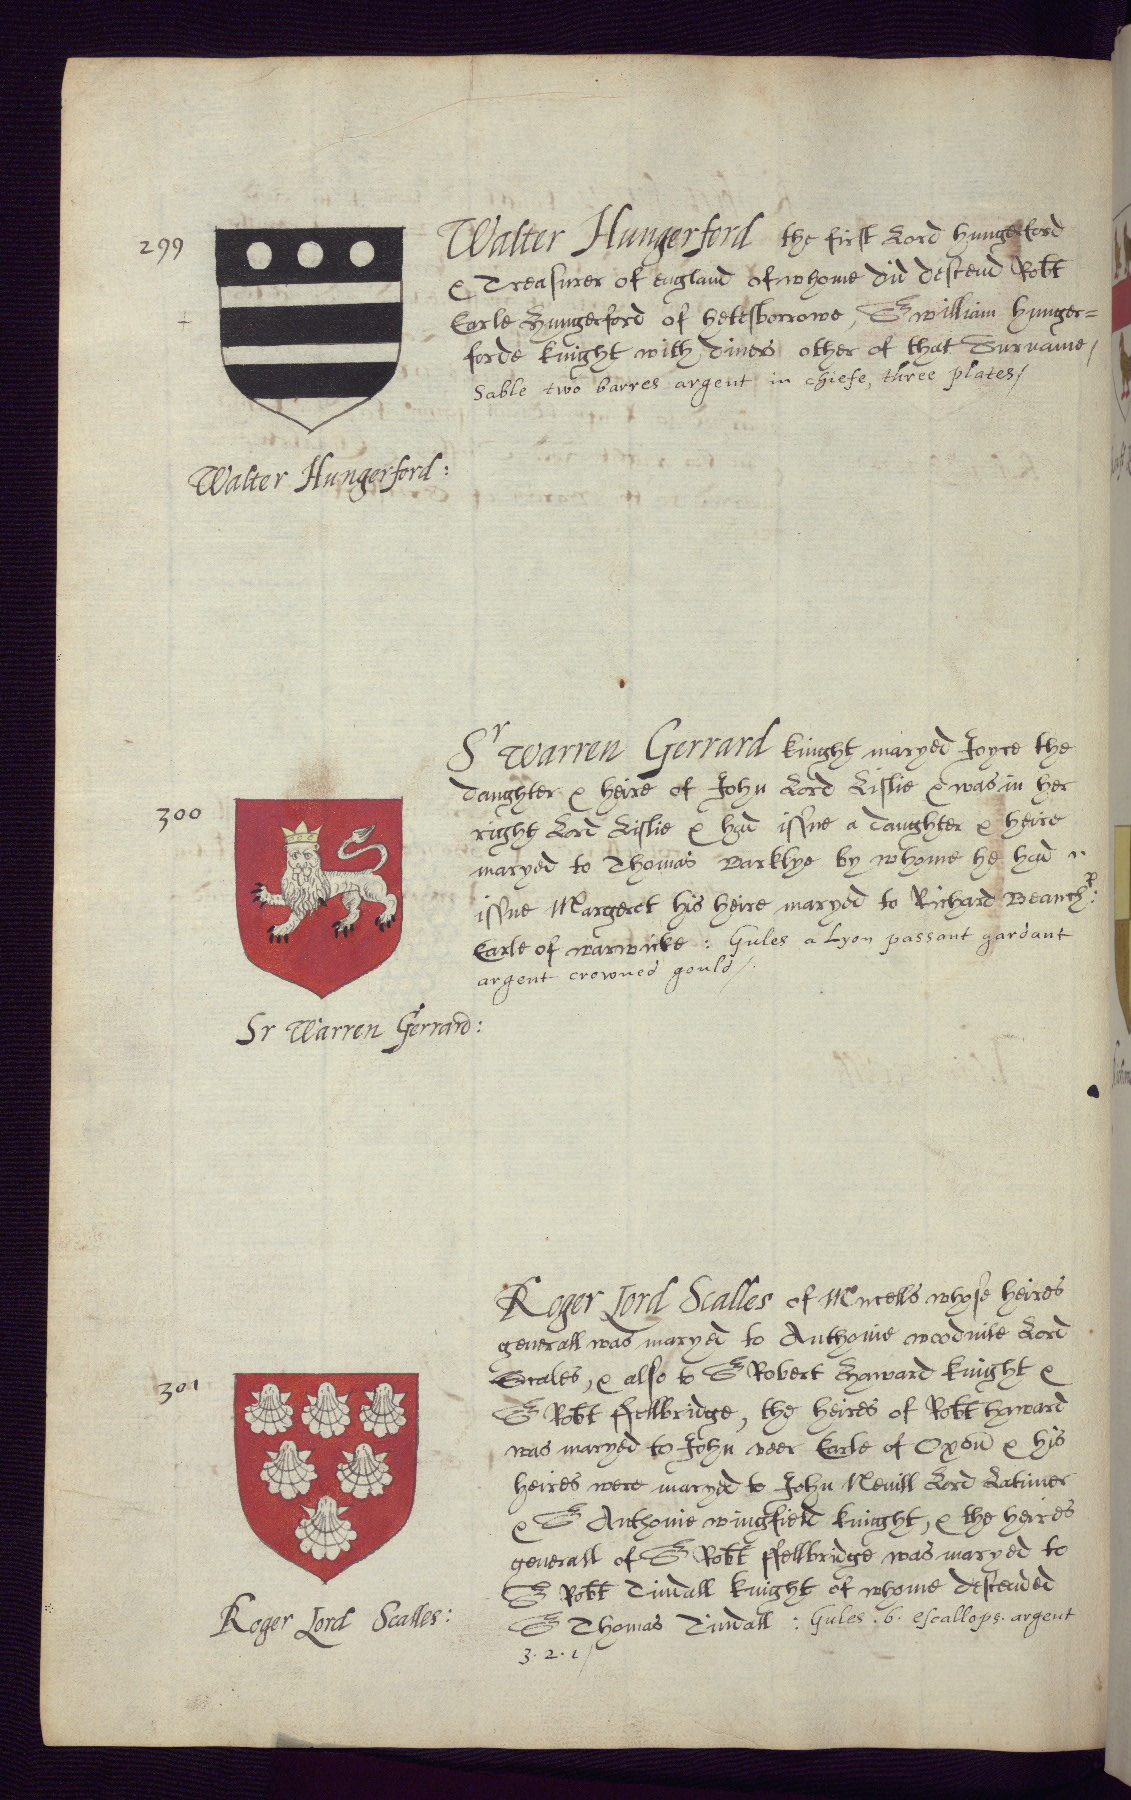 299
Walter Hungerford the first Lord Hungerford
& Treasurer of england of whome did descend Robt
Earle Hungerford of hetesborrowe, Sr william Hunger=
forde knight with divers other of that Surname/
Sable two barres argent in chiefe, three plates/
Walter Hungerford:
300
Sr Warren Gerrard knight maryed Joyce the
daughter & heire of John Lord Lislie & was in her
right Lord Lislie & had issue a daughter & heire
maryed to Thomas Barklye by whome he had
issue Margeret his heire maryed to Richard Beauch:
Earle of warwicke: Gules a Lyon passant gardant
argent crowned gould/.
Sr Warren Gerrard:
301
Roger Lord Scalles of Nucells whose heires
generall was maryed to Anthonie woodvile Lord
Scales, & also to Sr Robert Haward knight &
Sr Robt ffellbridge, the heires of Robt haward
was maryed to John veer Earle of Oxōn & his
heires were maryed to John Nevill Lord Latimer
& Sr Anthonie wingfield knight, & the heires
generall of Sr Robt ffellbridge was maryed to
Sr Robt Tindall knight of whome descended
Sr Thomas Tindall: Gules. 6. escallops. argent
3. 2. 1/
Roger Lord Scalles: